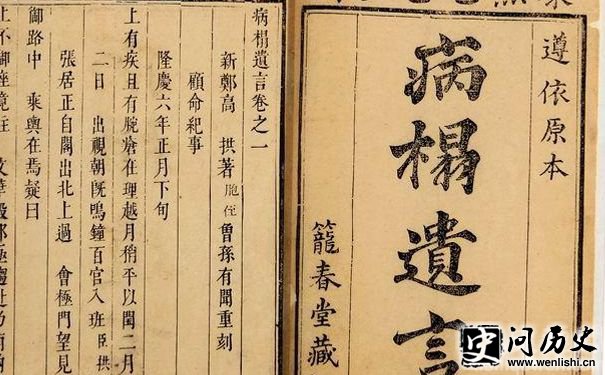 遵依原本
病榻遺言
籠春堂藏
病榻遺言卷之一
新鄭高 拱著 胞侄 曾孫有聞重刻
顧命紀事
隆慶六年正月下旬
上有疾且有腕瘡在理越月稍平以閏二月
二日 出視朝旣鳴鐘百官入班臣拱
張居正自閣出北上過 會極門望見
御路中 乘輿在焉疑曰
上不御座竟往 文華殿邪
史 问历史
www.wenlishi.cn